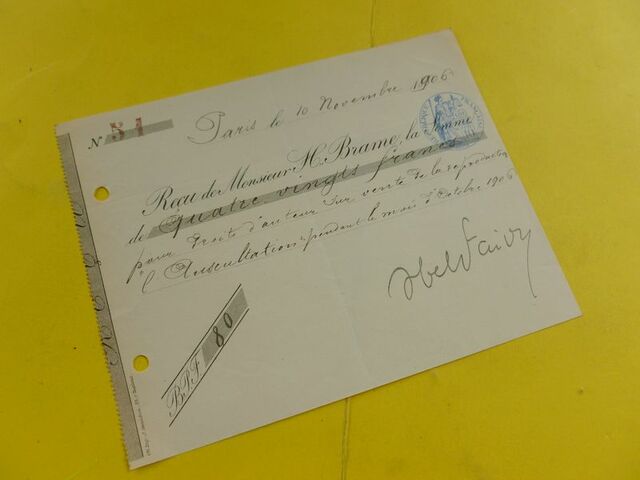 Paris le 10 Novembre 1906
N° 51
Reçu de Monsieur H. Brame, la somme
de quatre vingts francs
pour droits d'auteur sur vente de la reproduction
"l'Auscultation" pendant le mois d'Octobre 1906
Abel Faivre
B.P.F. 80
REÇU